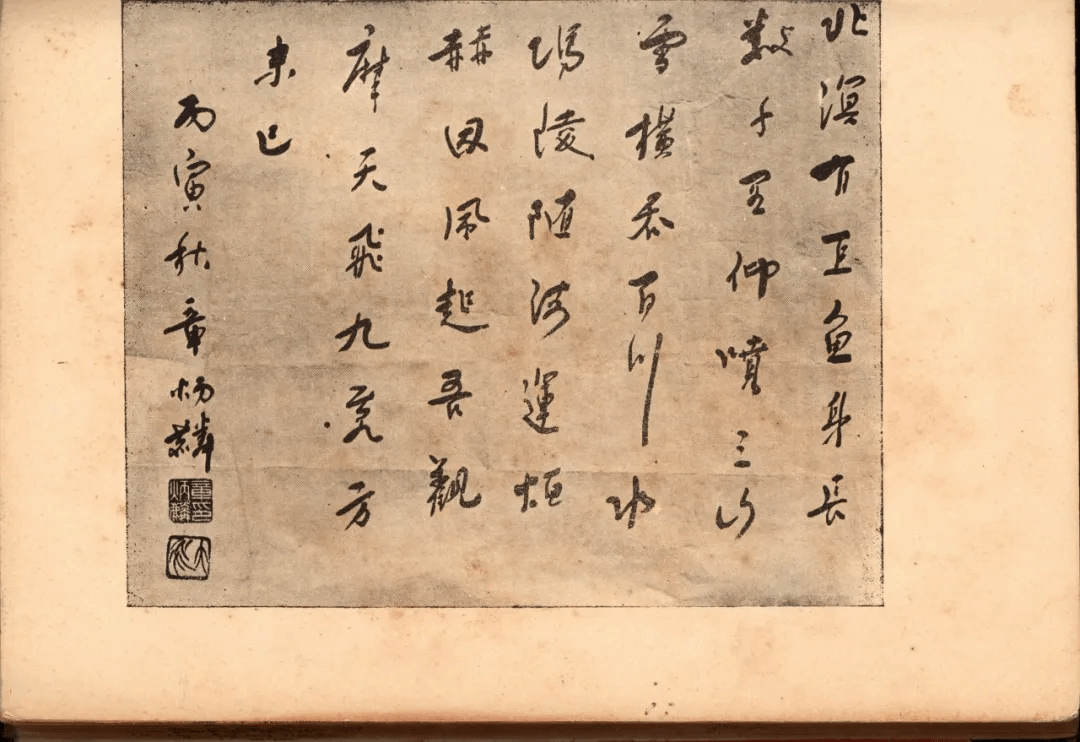 北溟有巨魚身長
數千里仰噴三山
雪橫吞百川水
馮陵隨海運烜
赫因風起吾觀
摩天飛九萬方
未已
丙寅秋章炳麟
章印炳麟
太炎